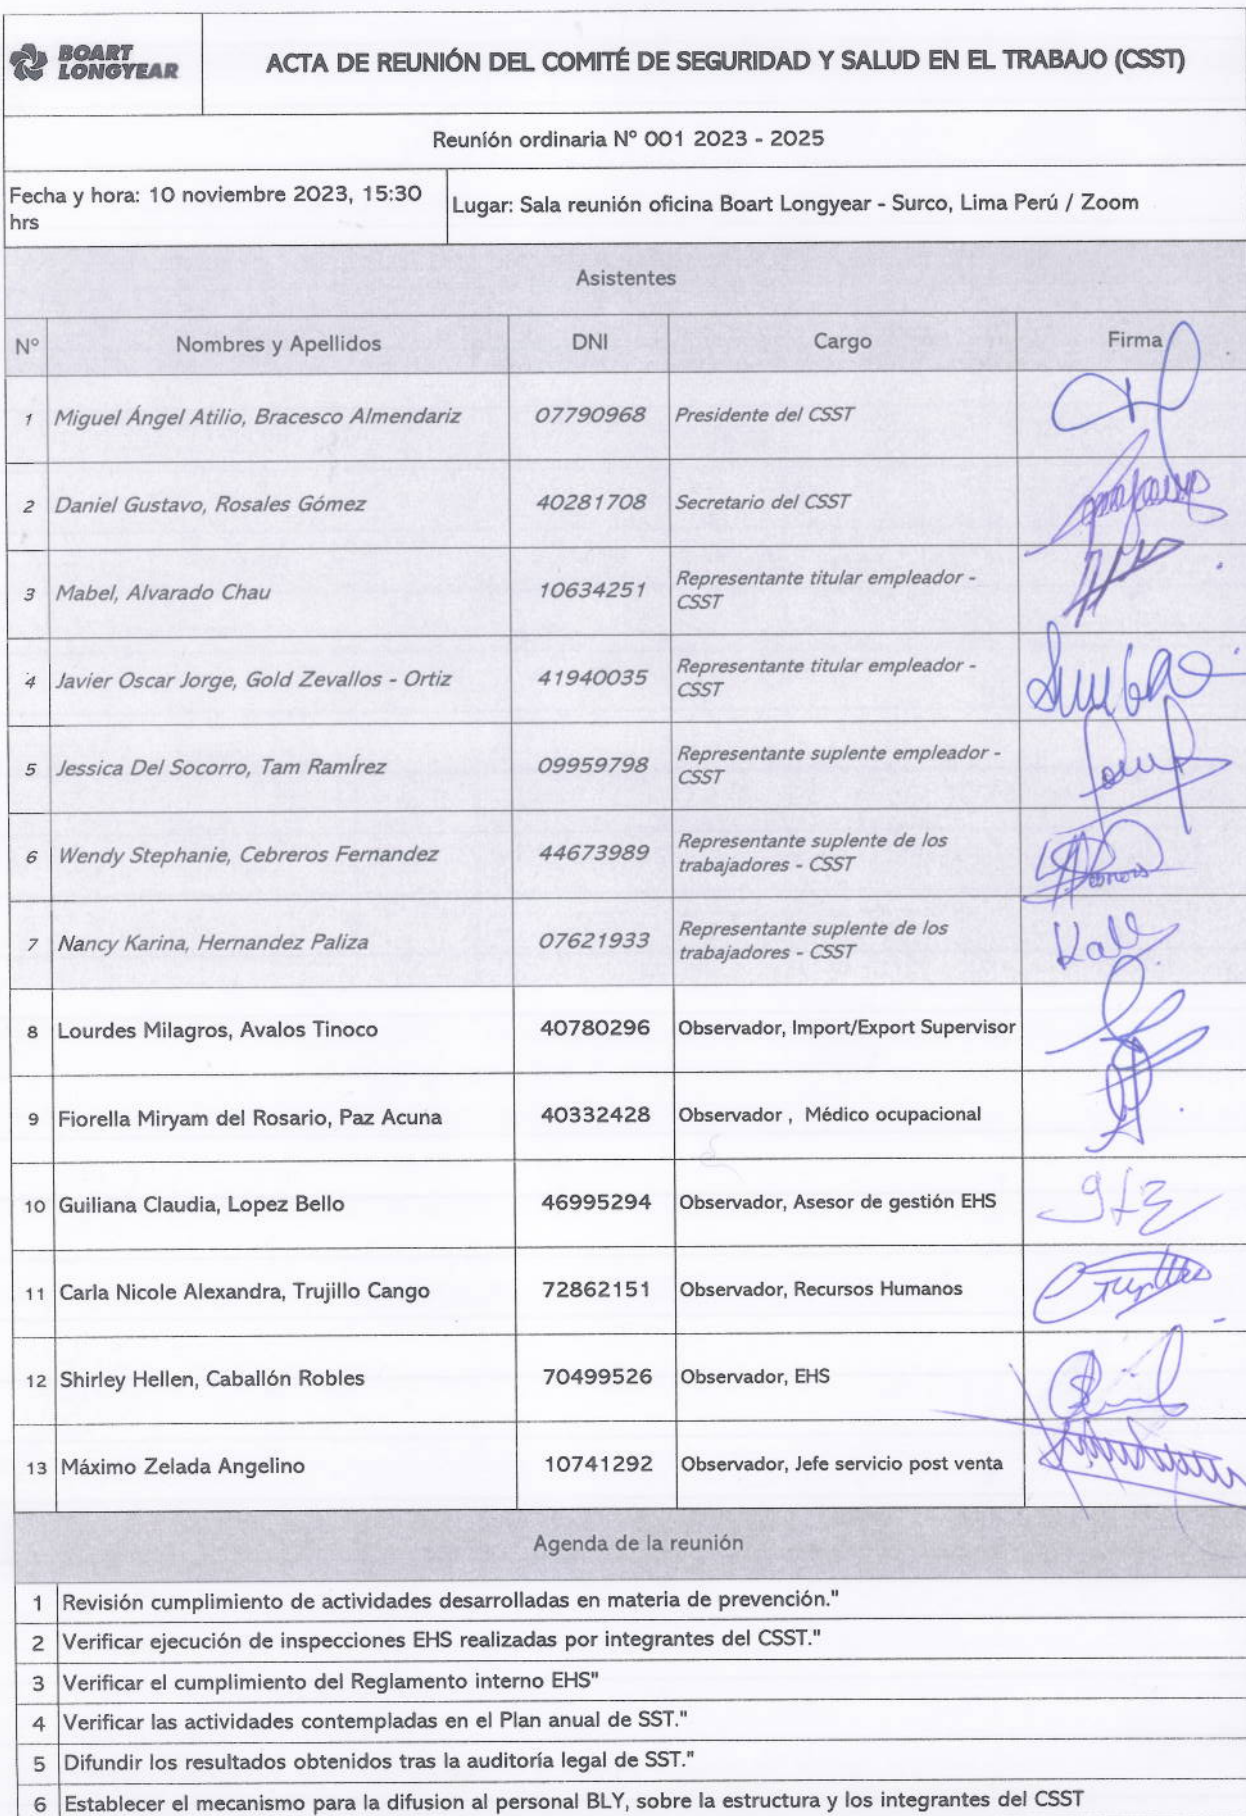 BOART
LONGYEAR
ACTA DE REUNIÓN DEL COMITÉ DE SEGURIDAD Y SALUD EN EL TRABAJO (CSST)
Reunión ordinaria Nº 001 2023 - 2025
Fecha y hora: 10 noviembre 2023, 15:30
hrs
Lugar: Sala reunión oficina Boart Longyear - Surco, Lima Perú / Zoom
Asistentes
Nº Nombres y Apellidos DNI Cargo Firma
1 Miguel Ángel Atilio, Bracesco Almendariz 07790968 Presidente del CSST
2 Daniel Gustavo, Rosales Gómez 40281708 Secretario del CSST
3 Mabel, Alvarado Chau 10634251 Representante titular empleador -
CSST
4 Javier Oscar Jorge, Gold Zevallos - Ortiz 41940035 Representante titular empleador -
CSST
5 Jessica Del Socorro, Tam Ramírez 09959798 Representante suplente empleador -
CSST
6 Wendy Stephanie, Cebreros Fernandez 44673989 Representante suplente de los
trabajadores - CSST
7 Nancy Karina, Hernandez Paliza 07621933 Representante suplente de los
trabajadores - CSST
8 Lourdes Milagros, Avalos Tinoco 40780296 Observador, Import/Export Supervisor
9 Fiorella Miryam del Rosario, Paz Acuna 40332428 Observador , Médico ocupacional
10 Guiliana Claudia, Lopez Bello 46995294 Observador, Asesor de gestión EHS
11 Carla Nicole Alexandra, Trujillo Cango 72862151 Observador, Recursos Humanos
12 Shirley Hellen, Caballón Robles 70499526 Observador, EHS
13 Máximo Zelada Angelino 10741292 Observador, Jefe servicio post venta
Agenda de la reunión
1 Revisión cumplimiento de actividades desarrolladas en materia de prevención."
2 Verificar ejecución de inspecciones EHS realizadas por integrantes del CSST."
3 Verificar el cumplimiento del Reglamento interno EHS"
4 Verificar las actividades contempladas en el Plan anual de SST."
5 Difundir los resultados obtenidos tras la auditoría legal de SST."
6 Establecer el mecanismo para la difusion al personal BLY, sobre la estructura y los integrantes del CSST